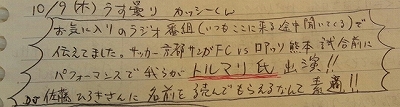 10/9(木)うす曇り カッシーくん
お気に入りのラジオ番組(いつもここに来る途中聞いてくる)で
伝えてました。サッカー京都サンガFC vs ロアッソ熊本 試合前に
パフォーマンスで我らが トルマリ氏 出演!!
DJ 佐藤ひろきさんに名前を読んでもらえるなんて素晴!!